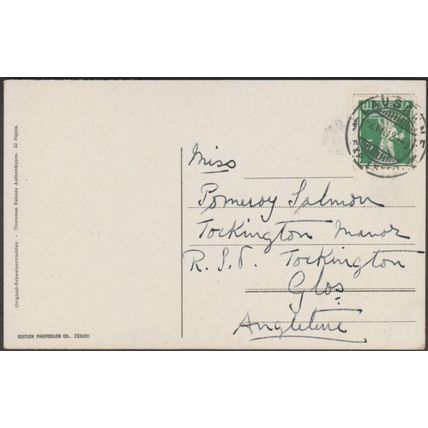 Miss
Pomeroy Salmon
Tockington Manor
R.S.O. Tockington
Glos
Angleterre
Original-Schweizertrachten - Costumes Suisses Authentiques. 25 Sujets.
EDITION PHOTOGLOB CO., ZÜRICH